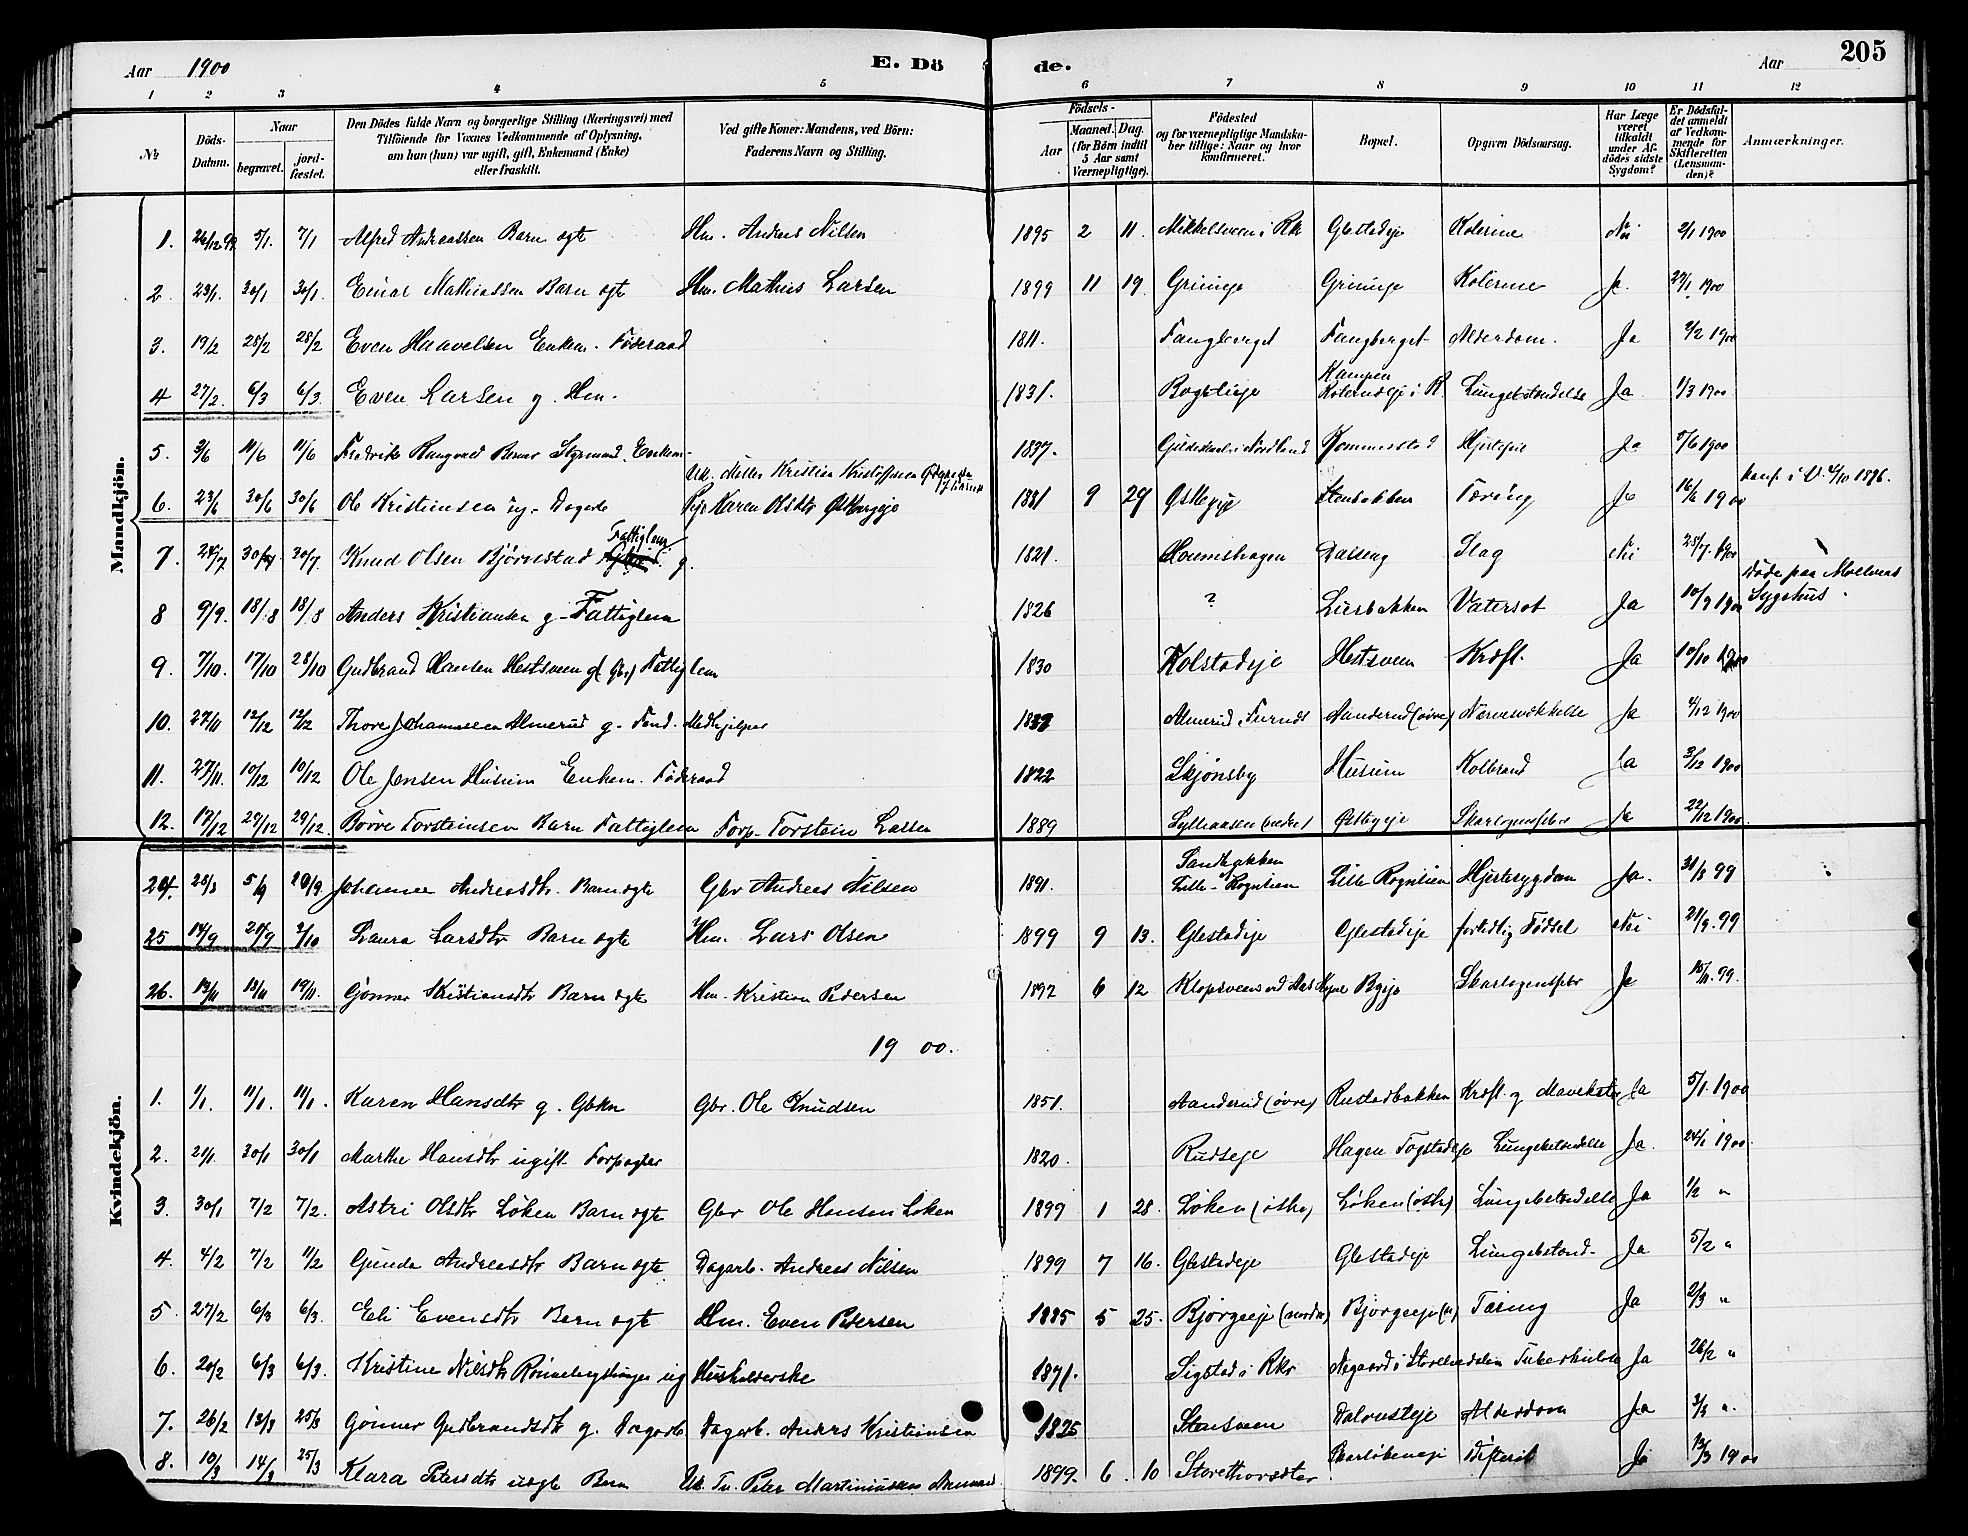 Aar 1900 E. Dö de. Aar 205
1 2 3 4 5 6 7 8 9 10 11 12
No Döds-Datum. Naar begravet. jord-fæstet. Den Dödes fulde Navn og borgerlige Stilling (Næringsvei) med Tilföiende for Voxnes Vedkommende af Oplysning, om han (hun) var ugift, gift, Enkemand (Enke) eller fraskilt. Ved gifte Koner: Mandens, ved Börn: Faderens Navn og Stilling. Födsels- Aar Maaned. Dag. (for Börn indtil 5 Aar samt Værnepligtige). Födested og for værnepligtige Mandska-ber tillige: Naar og hvor konfirmeret. Bopæl. Opgiven Dödsaarsag. Har Læge været tilkaldt under Af-dödes sidste Sygdom? Er Dödsfal-det anmeldt af Vedkom-mende for Skifteretten (Lensman-den)? Anmærkninger.
Mandkjön.
1. 26/12 99 5/1. 7/1 Alfred Andreassen Barn egte Hm. Andreas Nilsen 1895 2 11. Mikkelsveen i Rk Glestadeje Kolerine Nei 2/1 1900
2. 23/1. 30/1 30/1. Einar Mathiassen Barn egte Hm. Mathias Larsen 1899 11 19. Grimeje Grimeje Kolerine Ja. 27/1 1900
3. 19/2 28/2 28/2 Even Haavelsen Enkem. Føderaad 1811. Fangberget Fangberget Alderdom. Ja 2/2 1900
4 27/2. 6/3 6/3. Even Larsen g. Hm. 1831. Bogslieje Kampen i R. Lungebetændelse Ja 1/3 1900
5. 3/6 11/6 11/6 Fredrik Styrmand. Enkem. 1837. i Nordland Kommerstad Hjertefeil Ja 5/6 1900
6. 23/6 30/6 30/6 Ole Kristiansen ug. Uk. Møller Kristian Kristoffersen Pige Karen Olsdtr 1881 9 29 Stensbakken Tæring Ja 16/6 1900 konf. i V. 4/10 1896.
7. 24/7 30/7 30/7. Knud Olsen Bjørnstad Fattiglem g. 1821. Houmshagen Slag Nei 25/7. 1900
8 9/9. 18/8 18/8 Anders Kristiansen g. Fattiglem 1826 ? Liesbakken Vatersot Ja 10/9 1900 Døde paa Moelvens Sygehus.
9. 7/10. 17/10 28/10 Gudbrand Hansen Hestsveen g. Fattiglem 1830 Kolstadeje Hestsveen Kræft. Ja 10/10 1900
10. 27/11 12/12 12/12 Thore Johannessen Almerud g. Ford. Medhjelper Almerud Furnæs Aanderud (øvre) Nervesvækkelse Ja 4/12 1900
11. 27/11. 10/12 10/12 Ole Jensen Husum Enkem. Føderaad 1822 Skjønsby Husum Kolbrand Ja 3/12 1900
12. 17/12 29/12 29/12. Børre Torsteinsen Barn Fattiglem Forp. Torstein Larsen 1889 Sylliaasen (nedre) Skarlagensfeber Ja 22/12 1900.
24. 28/8 5/9 20/9 Johanne Andreasdtr. Barn egte Gbr Andreas Nilsen 1891. Sandbakken Lille-Rognlien Lille Rognlien Hjertesygdom Ja. 31/8 99
25 14/9 20/9 2/10 Laura Larsdtr Barn egte Hm. Lars Olsen 1899 9 13. Glestadeje Glestadeje fortidlig Fødsel Nei 21/9. 99
26. 13/11 19/11. Gønner Kristiansdtr Barn egte Hm. Kristian Pedersen 1892 6 12 Klopsveen Skarlagensfebr Ja 15/11. 99.
1900.
Kvindekjön.
1. 1/1. 11/1. 11/1. Karen Hansdtr g. Gbkn Gbr. Ole Knudsen 1851. Aanderud (øvre) Rustadbakken Kræft. g Ja 5/1. 1900
2. 21/1. 30/1 30/1 Marthe Hansdtr ugift. Forpagter 1820. Rudseje Hagen Togstadeje Lungebetændelse Ja. 24/1 1900.
3. 30/1 7/2 7/2. Astri Olsdtr Løken Barn egte Gbr Ole Hansen Løken 1899 1 28. Løken (østre) Løken (østre) Lungebetændelse Ja 1/2 "
4. 4/2 7/2 11/2 Gunda Andreasdtr Barn egte Dagarb. Andreas Nilsen 1899 7 16. Glestadeje Glestadeje Lungebetænd. Ja 5/2 "
5 27/2 6/3 6/3. Eli Evensdtr Barn egte Hm. Even Petersen 1885 5 25. Bjørgeeje (nordre) Bjørgeeje (n) Tæring Ja 2/3 "
6. 20/2 6/3 6/3. Kristine Nilsdtr ug Husholderske 1871. Sigstad i Rkr Tuberkulose Ja 26/2 "
7. 26/2 13/3 25/3 Gønner Gudbrandsdtr g. Dagarb Dagarb. Anders Kristiansen 1825 Stensveen Alderdom Ja 3/3 ".
8. 10/3 14/3 25/3 Klara Petersdtr uegte Barn Uk. Tu. Peter Martiniussen 1899. 6. 10 Difterit Ja 13/3 1900